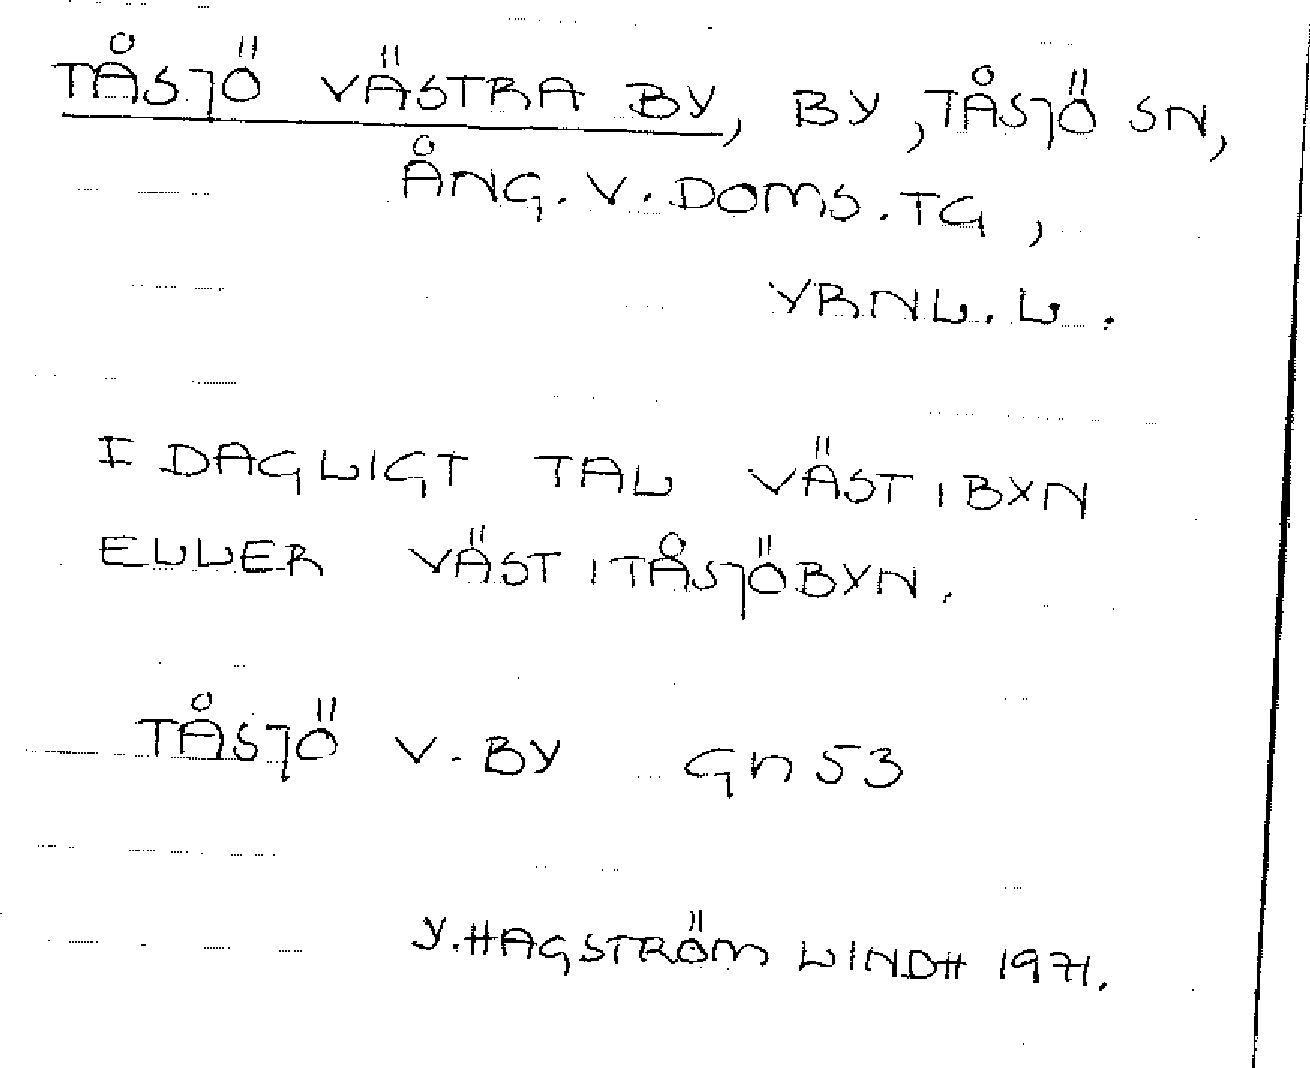 TÅSJÖ VÄSTRA BY, BY, TÅSJÖ SN,
ÅNG. V. DOMS. TG,
YRNL. L.
I DAGLIGT TAL VÄST I BYN
ELLER VÄST I TÅSJÖBYN.
TÅSJÖ V. BY Gn 53
Y. HAGSTRÖM LINDH 1971.